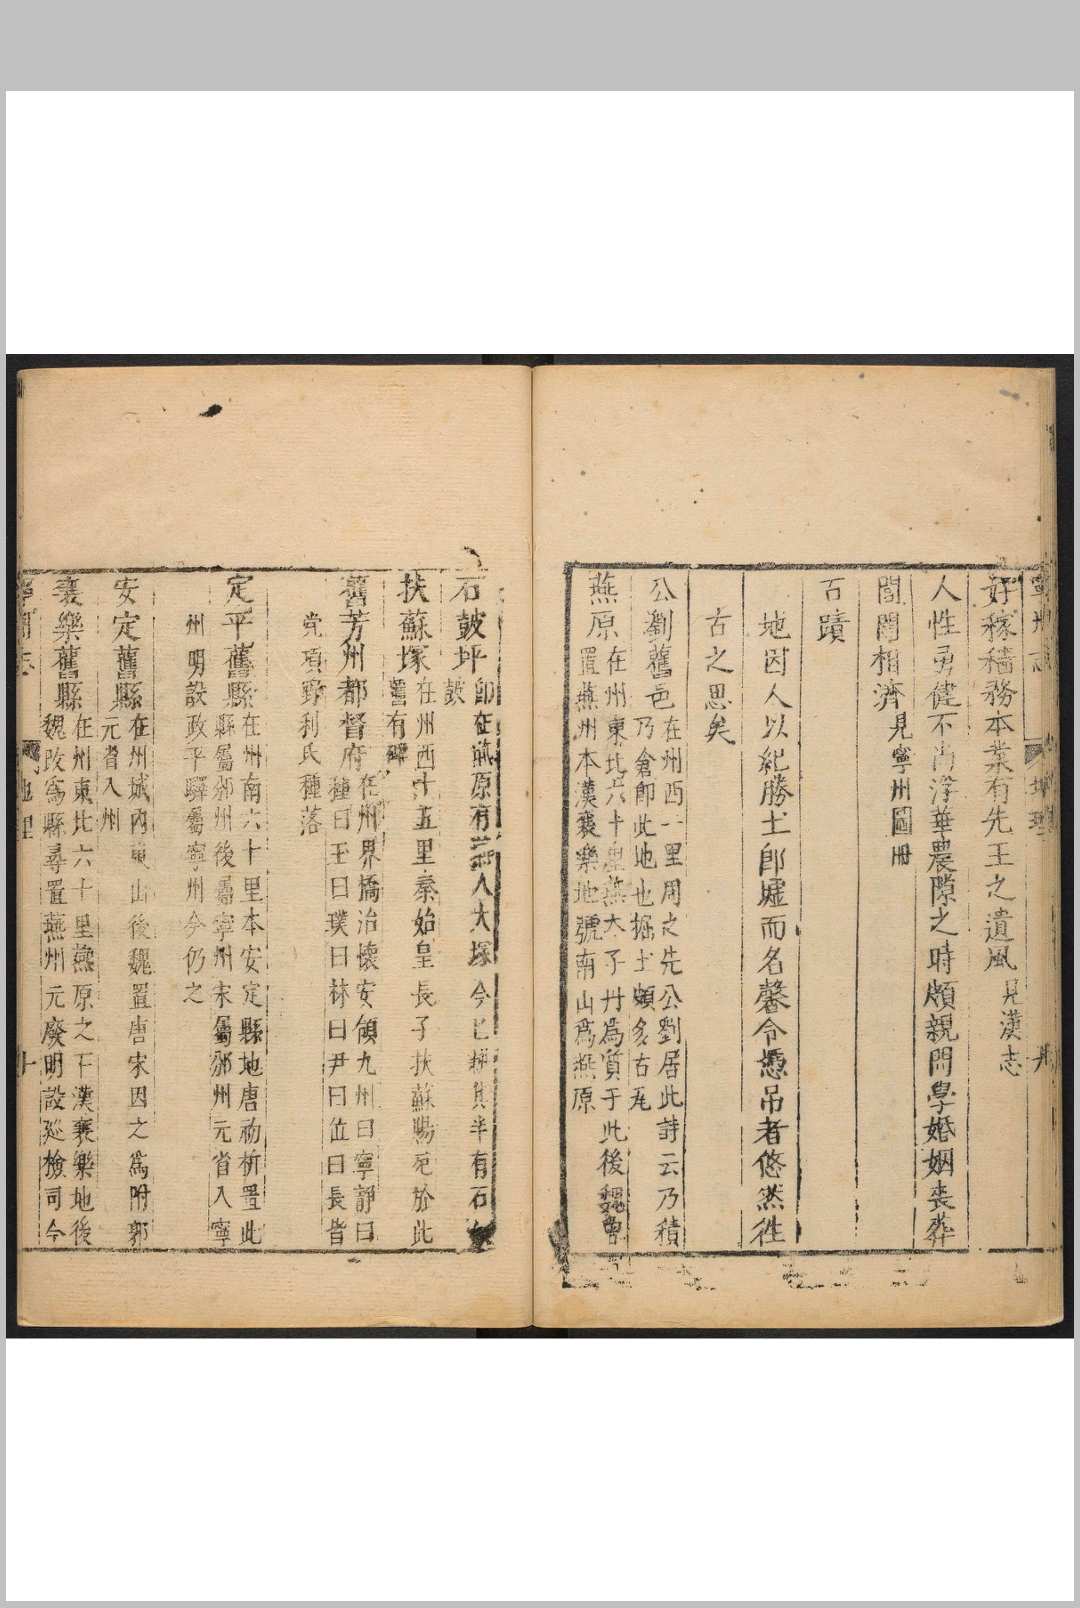 寧州志 地理 九
好稼穡務本業有先王之遺風見漢志
人性勇健不尚浮華農隙之時頗親問學婚姻喪葬
閭閻相濟見寧州圖冊
古蹟
地因人以紀勝士即墟而名馨令憑吊者悠然徃
古之思矣
公劉舊邑在州西一里周之先公劉居此詩云乃積
乃倉即此地也掘土頗多古瓦
燕原在州東北六十里燕太子丹為質于此後魏曾
置燕州本漢襄樂地號南山為燕原
石鼓坪即在燕原有 人大塚今已 其半有石
鼓
扶蘇塚在州西十五里秦始皇長子扶蘇賜死於此
舊有碑
舊芳州都督府在州界橋治懷安領九州曰寧靜曰
種曰玉曰璞曰林曰尹曰位曰長皆
党項野利氏種落
定平舊縣在州南六十里本安定縣地唐初析置此
縣屬邠州後屬寧州宋屬邠州元省入寧
州明設政平驛屬寧州今仍之
安定舊縣在州城內東山後魏置唐宋因之為附郭
元省入州
襄樂舊縣在州東北六十里燕原之下漢襄樂地後
魏改為縣尋置燕州元廢明設廵檢司今
寧州志 地理 十